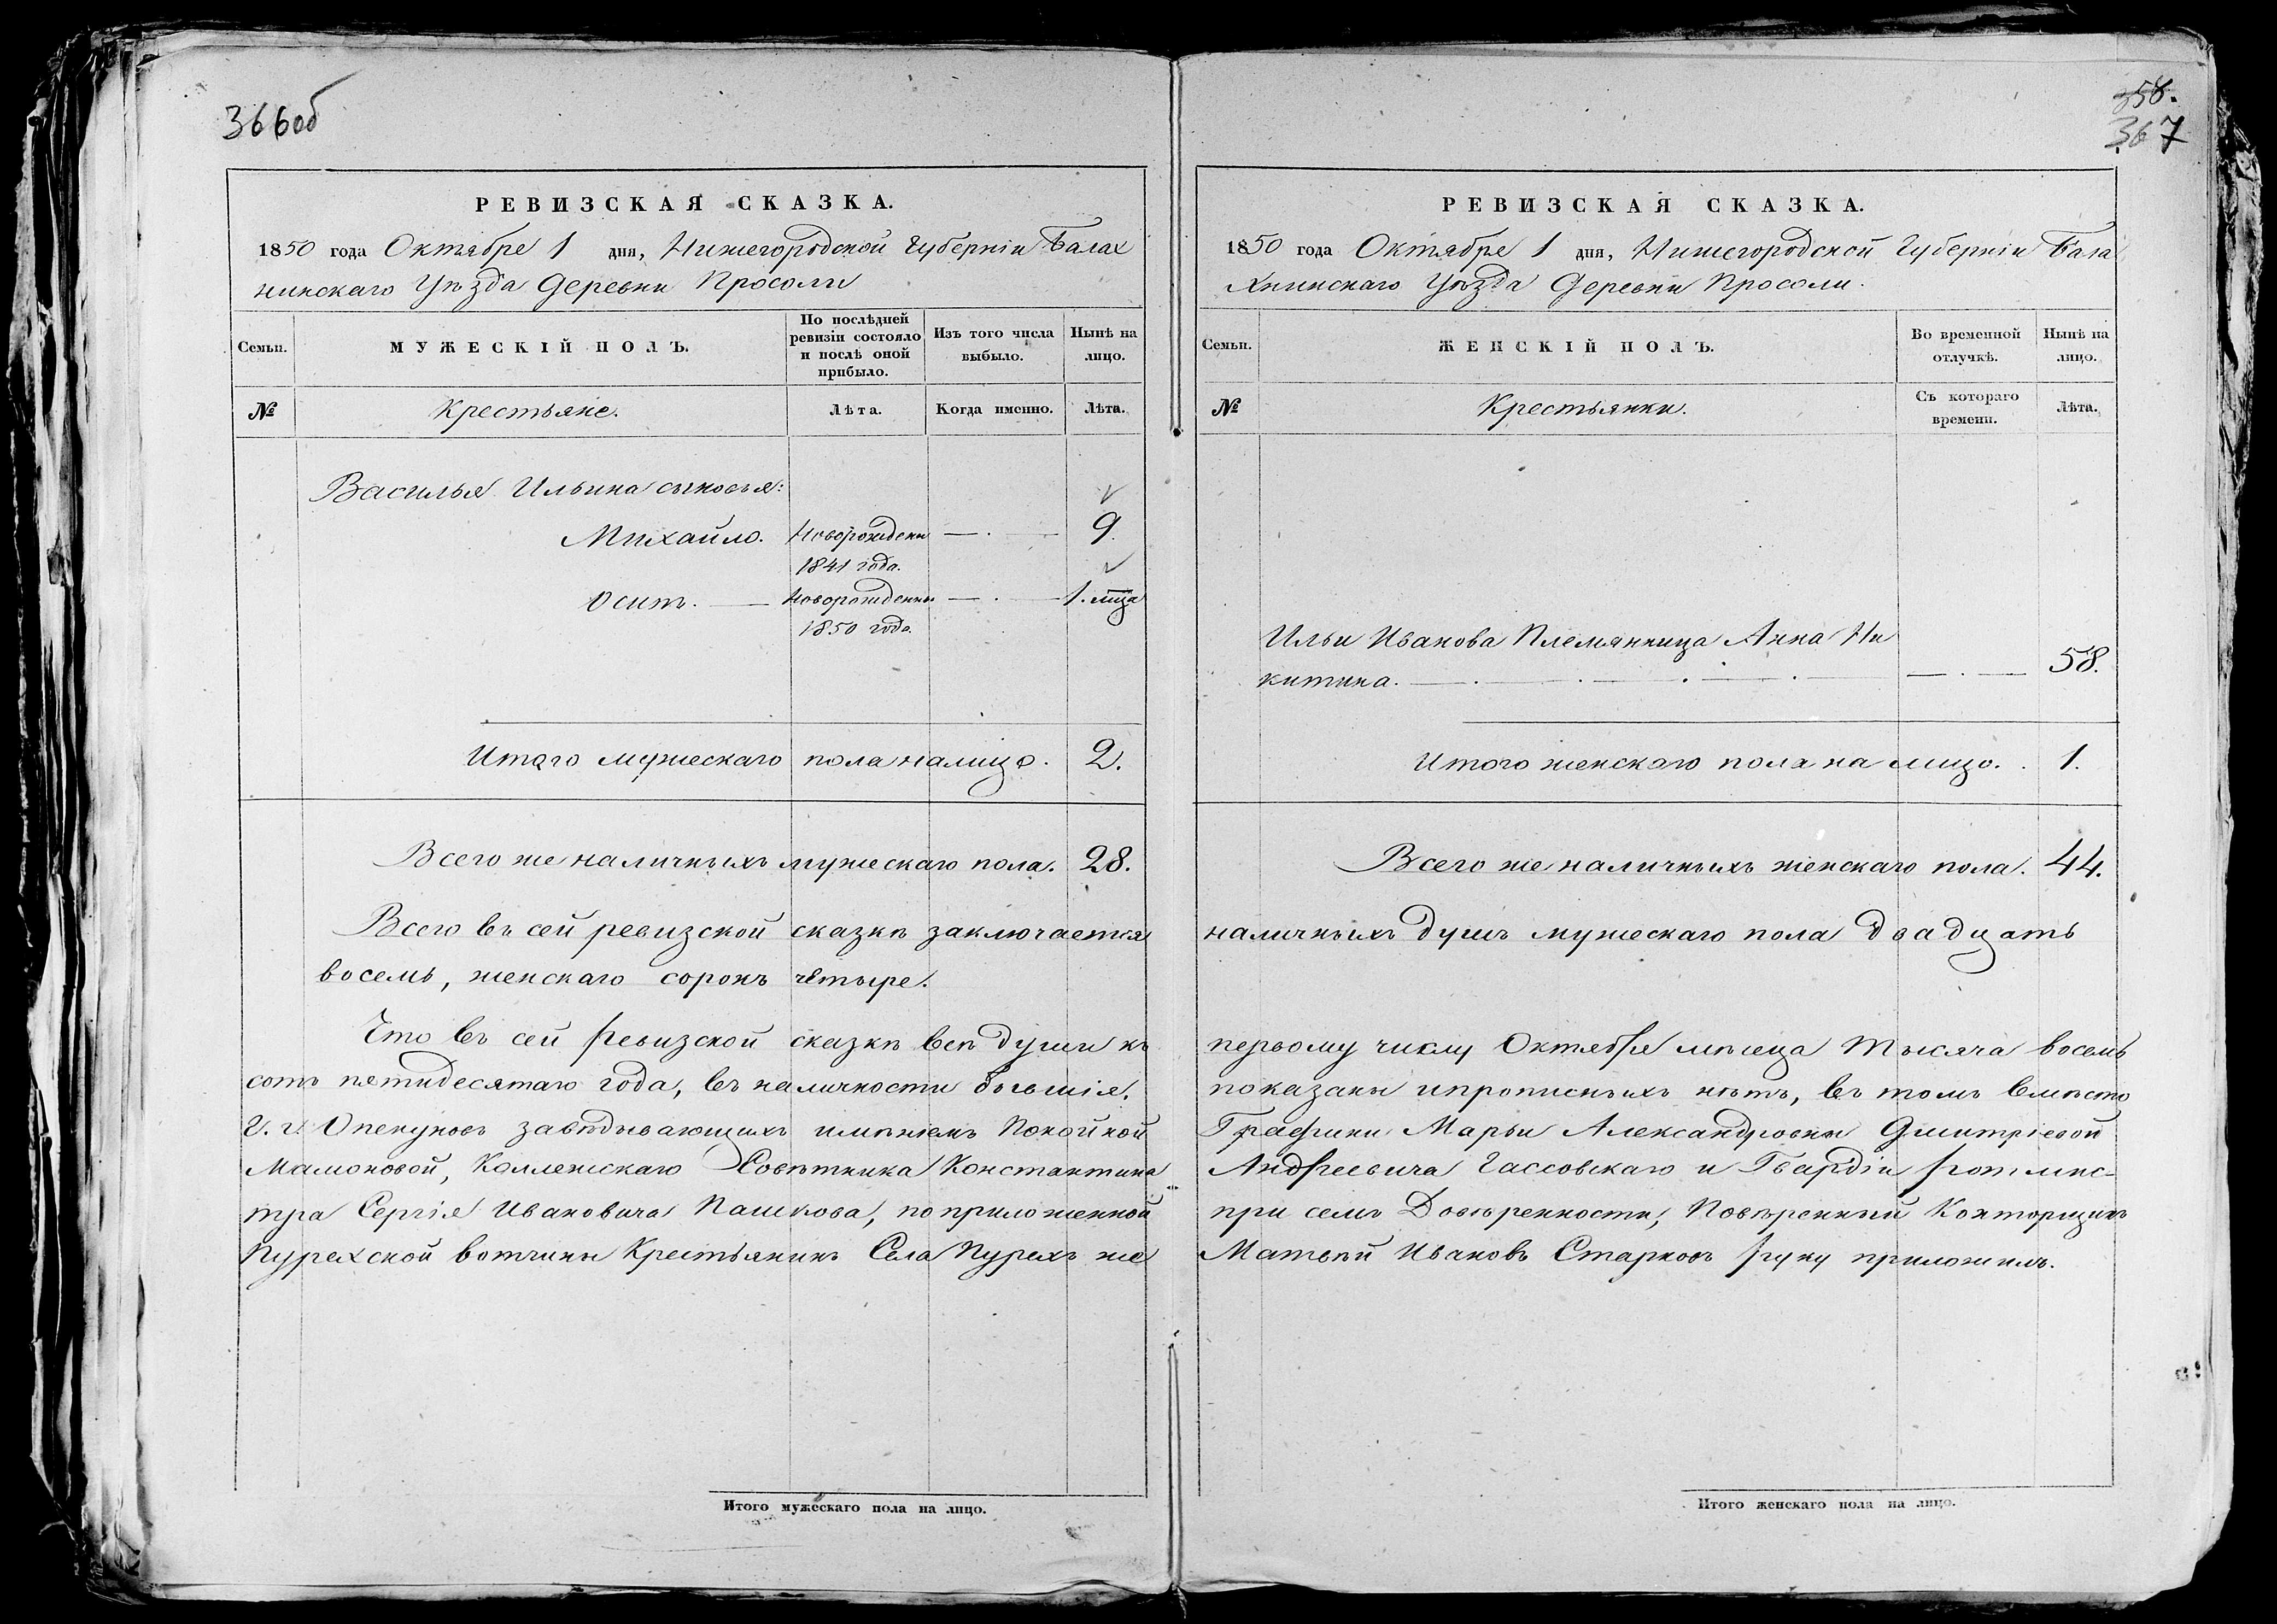 366об
РЕВИЗСКАЯ СКАЗКА.
1850 года Октября 1 дня, Нижегородской Губерніи Балах
нинскаго Уѣзда Деревни Просоли
Семьи.
МУЖЕСКІЙ ПОЛЪ.
По послѣдней
ревизіи состояло
и послѣ оной
прибыло.
Изъ того числа
выбыло.
Нынѣ на
лицо.
№
Крестьяне.
Лѣта.
Когда именно.
Лѣта.
Василья Ильина сыновья:
Михайло. Новорожденн 9.
1841 года.
Осипъ. Новорожденны 1. мца
1850 года.
Итого мужескаго пола налицо. 2.
Всего же наличныхъ мужескаго пола. 28.
Всего въ сей ревизской сказкѣ заключается
восемь, женскаго сорокъ четыре.
Что въ сей ревизской сказкѣ всѣ души къ
сотъ пятидесятаго года, въ наличности бывшія,
Г. г. Опекуновъ завѣдывающихъ имѣніемъ Покойной
Мамоновой, Коллежскаго Совѣтника Константина
тра Сергія Ивановича Пашкова, по приложенной
Пурехской вотчины Крестьянинъ Села Пурехъ же
Итого мужескаго пола на лицо.
358.
367
РЕВИЗСКАЯ СКАЗКА.
1850 года Октября 1 дня, Нижегородской Губерніи Бала
хнинскаго Уѣзда Деревни Просоли.
Семьи.
ЖЕНСКІЙ ПОЛЪ.
Во временной
отлучкѣ.
Нынѣ на
лицо.
№
Крестьянки.
Съ котораго
времени.
Лѣта.
Ильи Иванова Племянница Анна Ни
китина. 58.
Итого женскаго пола на лицо. 1.
Всего же наличныхъ женскаго пола. 44.
наличныхъ душъ мужескаго пола двадцать
первому числу Октября мѣсяца тысяча восемь
показаны и прописныхъ нѣтъ, въ томъ вмѣсто
Графини Марьи Александровны Дмитріевой
Андреевича Гассовскаго и Гвардіи ротмис-
при семъ Довѣренности, Повѣренный Конторщикъ
Матвѣй Ивановъ Старковъ руку приложилъ.
Итого женскаго пола на лицо.